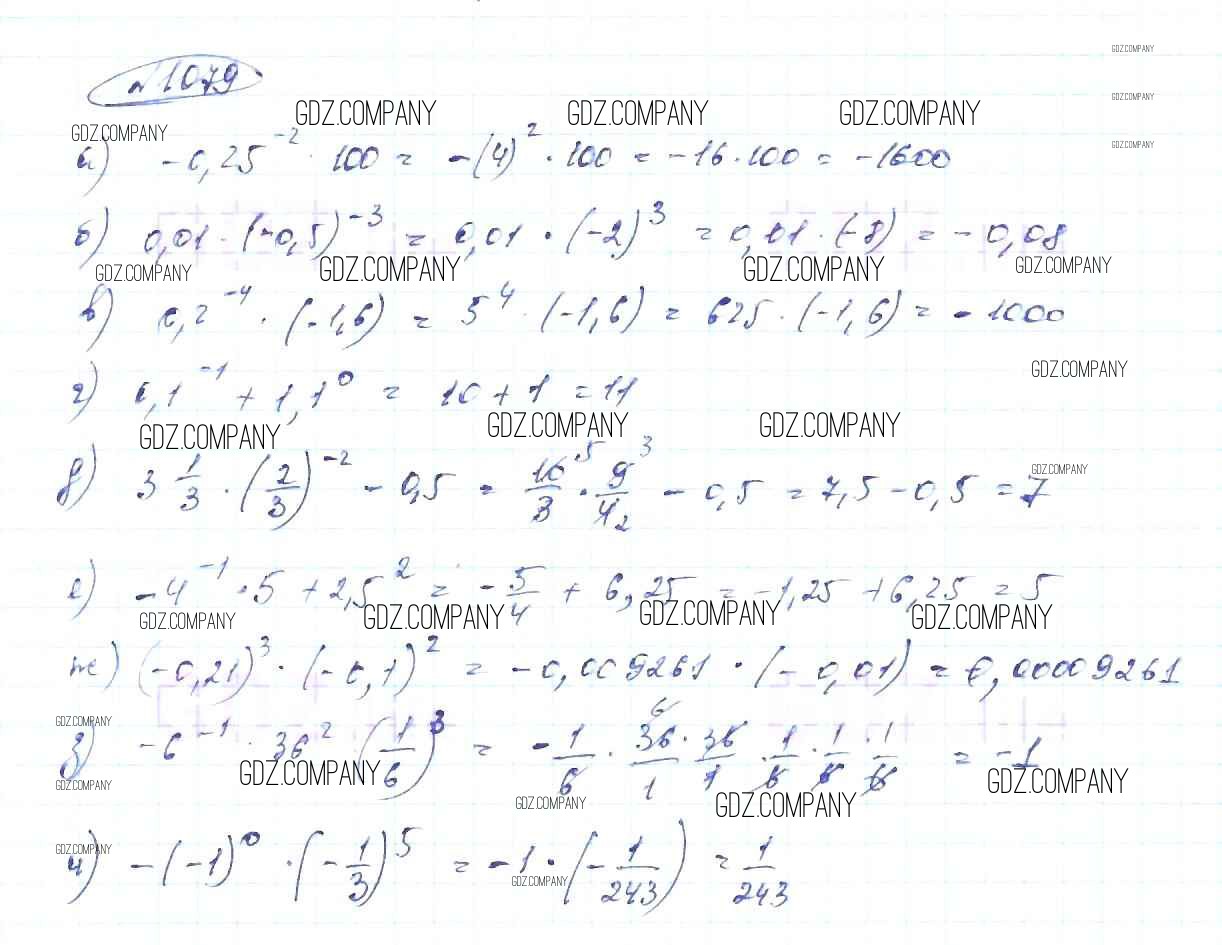 №1079
GDZ.COMPANY
GDZ.COMPANY GDZ.COMPANY GDZ.COMPANY GDZ.COMPANY
GDZ.COMPANY
GDZ.COMPANY
а) -0,25^-2 · 100 = -(4)^2 · 100 = -16·100 = -1600
б) 0,01 · (-0,5)^-3 = 0,01 · (-2)^3 = 0,01 · (-8) = -0,08
GDZ.COMPANY GDZ.COMPANY GDZ.COMPANY GDZ.COMPANY
в) 0,2^-4 · (-1,6) = 5^4 · (-1,6) = 625 · (-1,6) = -1000
GDZ.COMPANY
г) 0,1^-1 + 1,1^0 = 10 + 1 = 11
GDZ.COMPANY GDZ.COMPANY GDZ.COMPANY
GDZ.COMPANY
д) 3 1/3 · (2/3)^-2 - 0,5 = 10/3 5 · 9/4 3 2 - 0,5 = 7,5 - 0,5 = 7
е) -4^-1 · 5 + 2,5^2 = -5/4 + 6,25 = -1,25 + 6,25 = 5
GDZ.COMPANY GDZ.COMPANY GDZ.COMPANY GDZ.COMPANY
ж) (-0,21)^3 · (-0,1)^2 = -0,009261 · (-0,01) = 0,00009261
GDZ.COMPANY
з) -6^-1 · 36^2 · (1/6)^3 = -1/6 · 36/1 6 · 36/1 · 1/6 · 1/6 · 1/6 = -1
GDZ.COMPANY GDZ.COMPANY GDZ.COMPANY
GDZ.COMPANY GDZ.COMPANY
GDZ.COMPANY
и) -(-1)^0 · (-1/3)^5 = -1 · (-1/243) = 1/243
GDZ.COMPANY